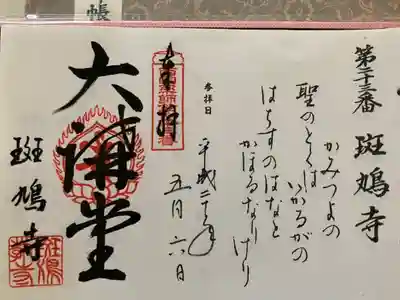 帳
第二十三番 斑鳩寺
かみつよの
聖のとくは
いかるがの
はちすのはなと
かほるなりけり
参拝日
平成二十年
五月六日
奉拝
大講堂
斑鳩寺